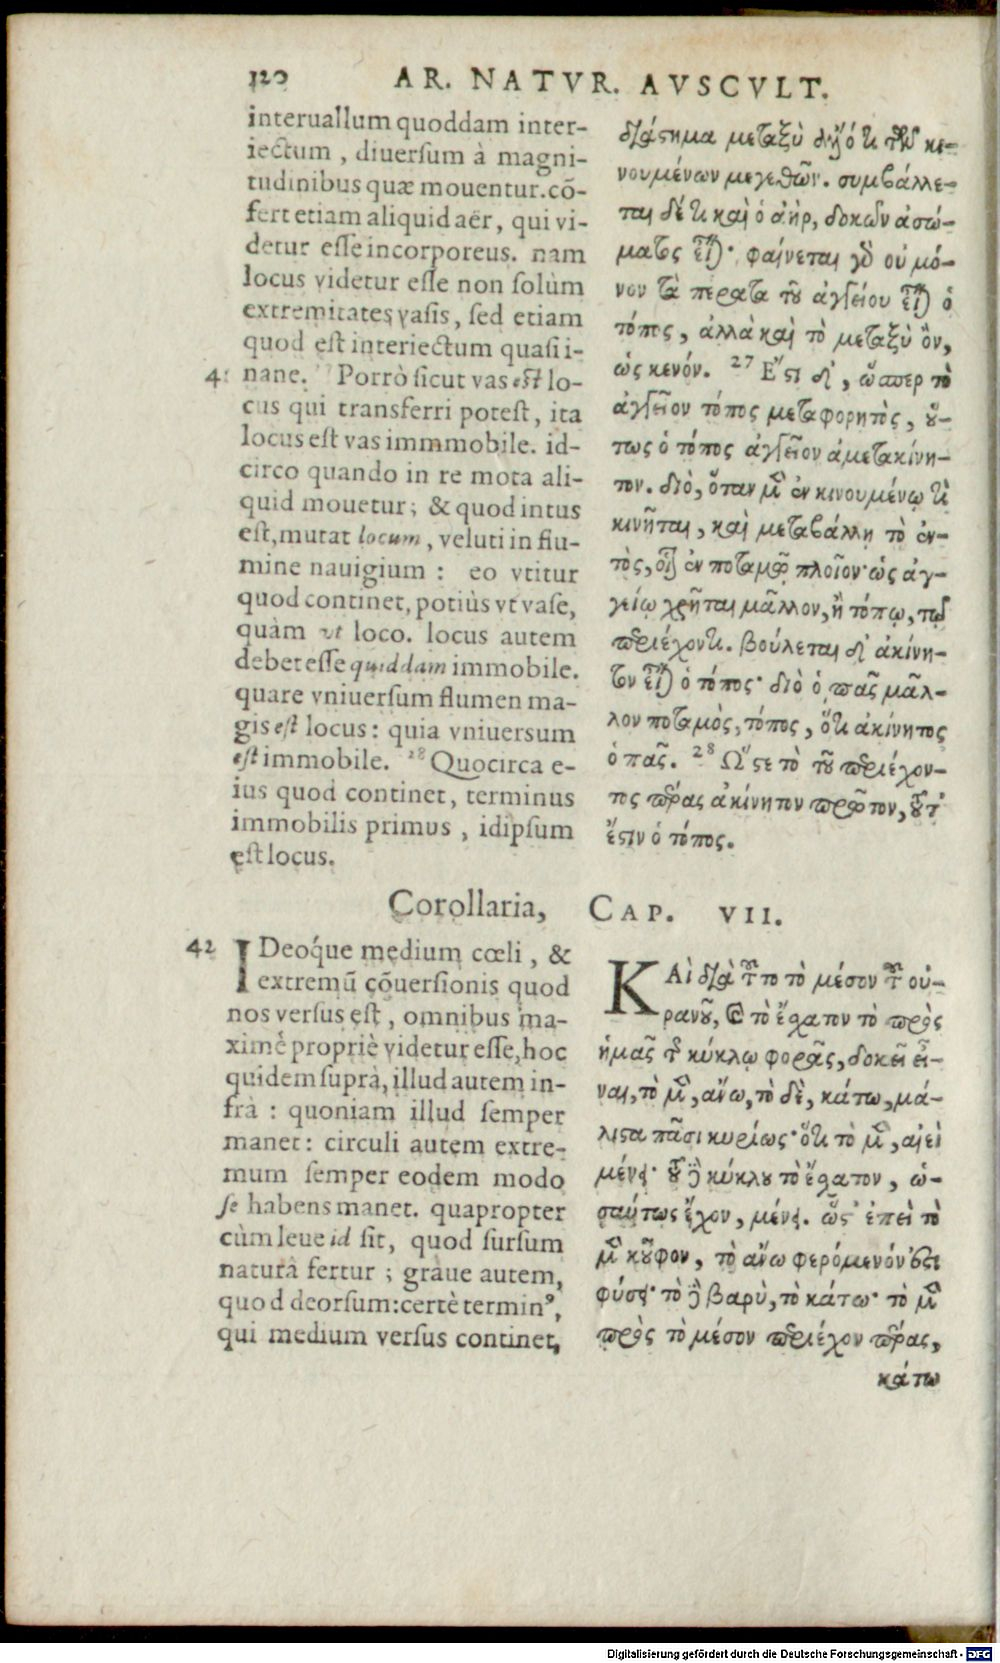 120 AR. NATVR. AVSCVLT.
interuallum quoddam inter-
iectum, diuersum à magni-
tudinibus quæ mouentur. cõ-
fert etiam aliquid aër, qui vi-
detur esse incorporeus. nam
locus videtur esse non solùm
extremitates vasis, sed etiam
quod est interiectum quasi i-
nane. Porrò sicut vas est lo-
cus qui transferri potest, ita
locus est vas immmobile. id-
circo quando in re mota ali-
quid mouetur; & quod intus
est, mutat locum, veluti in flu-
mine nauigium: eo vtitur
quod continet, potiùs vt vase,
quàm vt loco. locus autem
debet esse quiddam immobile.
quare vniuersum flumen ma-
gis est locus: quia vniuersum
est immobile. 28 Quocirca e-
ius quod continet, terminus
immobilis primus, idipsum
est locus.
διάστημα μεταξὺ εἶναί τι τῶν κι-
νουμένων μεγεθῶν. συμβάλλε-
ται δέ τι καὶ ὁ ἀὴρ, δοκῶν ἀσώ-
ματος εἶναι· φαίνεται γὸ οὐ μό-
νον τὰ πέρατα τοῦ ἀγγείου εἶναι ὁ
τόπος, ἀλλὰ καὶ τὸ μεταξὺ ὂν,
ὡς κενόν. 27 Ἔστι δ', ὥσπερ τὸ
ἀγγεῖον τόπος μεταφορητὸς, οὕ-
τως ὁ τόπος ἀγγεῖον ἀμετακίνη-
τον. διὸ, ὅταν μὲν ἐν κινουμένῳ τὶ
κινῆται, καὶ μεταβάλλῃ τὸ ἐν-
τὸς, οἷον ἐν ποταμῷ πλοῖον· ὡς ἀγ-
γείῳ χρῆται μᾶλλον, ἢ τόπῳ, τῷ
περιέχοντι. βούλεται δ' ἀκίνη-
τον εἶναι ὁ τόπος· διὸ ὁ πᾶς μᾶλ-
λον ποταμὸς, τόπος, ὅτι ἀκίνητος
ὁ πᾶς. 28 Ὥστε τὸ τοῦ περιέχον-
τος πέρας ἀκίνητον πρῶτον, τοῦτ'
ἔστιν ὁ τόπος.
Corollaria, CAP. VII.
42 IDeóque medium cœli, &
extremũ cõuersionis quod
nos versus est, omnibus ma-
ximè propriè videtur esse, hoc
quidem suprà, illud autem in-
frà: quoniam illud semper
manet: circuli autem extre-
mum semper eodem modo
se habens manet. quapropter
cùm leue id sit, quod sursum
naturâ fertur; graue autem,
quod deorsum: certè terminꝰ,
qui medium versus continet,
ΚΑὶ διὰ τοῦτο τὸ μέσον τοῦ οὐ-
ρανοῦ, καὶ τὸ ἔσχατον τὸ πρὸς
ἡμᾶς τῆς κύκλῳ φορᾶς, δοκεῖ εἶ-
ναι, τὸ μὲν, ἄνω, τὸ δὲ, κάτω, μά-
λιστα πᾶσι κυρίως· ὅτι τὸ μὲν, αἰεὶ
μένει· τοῦ δὲ κύκλου τὸ ἔσχατον, ὡ-
σαύτως ἔχον, μένει. ὥστ' ἐπεὶ τὸ
μὲν κοῦφον, τὸ ἄνω φερόμενόν ἐστι
φύσει· τὸ δὲ βαρὺ, τὸ κάτω· τὸ μὲν
πρὸς τὸ μέσον περιέχον πέρας,
κάτω
Digitalisierung gefördert durch die Deutsche Forschungsgemeinschaft - DFG